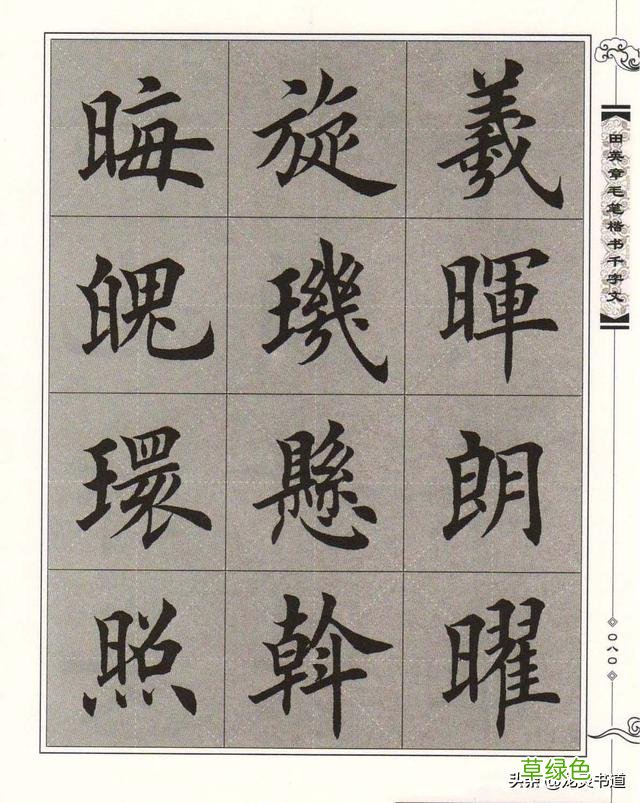 羲暉朗曜
旋璣懸斡
晦魄環照
田英章毛笔楷书千字文
〇八〇
草绿色
头条 @书道